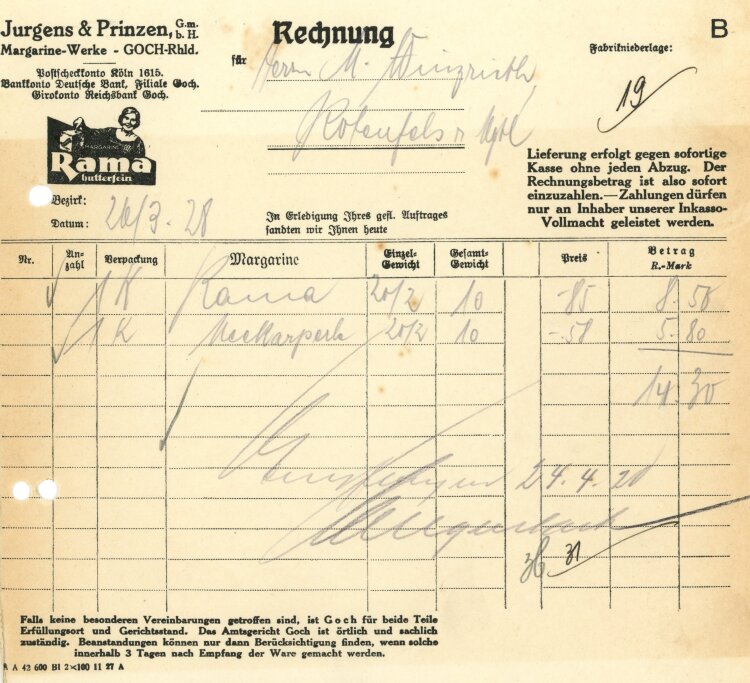 Jurgens & Prinzen, G.m.b.H.
Margarine-Werke - GOCH-Rhld.
Postscheckkonto Köln 1615.
Bankkonto Deutsche Bank, Filiale Goch.
Girokonto Reichsbank Goch.
MARGARINE
Rama
butterfein
Rechnung
für Herrn M.
Rotenfels
B
Fabrikniederlage:
19
Lieferung erfolgt gegen sofortige
Kasse ohne jeden Abzug. Der
Rechnungsbetrag ist also sofort
einzuzahlen.—Zahlungen dürfen
nur an Inhaber unserer Inkasso-
Vollmacht geleistet werden.
Bezirk:
Datum: 26/3. 28
In Erledigung Ihres gefl. Auftrages
sandten wir Ihnen heute
Nr. An-zahl Verpackung Margarine Einzel-Gewicht Gesamt-Gewicht Preis Betrag R.-Mark
1 K Rama 20/2 10 -85 8.50
1 K Neckarperle 20/2 10 -58 5.80
14.30
24.4.28
31
Falls keine besonderen Vereinbarungen getroffen sind, ist Goch für beide Teile
Erfüllungsort und Gerichtsstand. Das Amtsgericht Goch ist örtlich und sachlich
zuständig. Beanstandungen können nur dann Berücksichtigung finden, wenn solche
innerhalb 3 Tagen nach Empfang der Ware gemacht werden.
R A 42 600 Bl 2×100 11 27 A